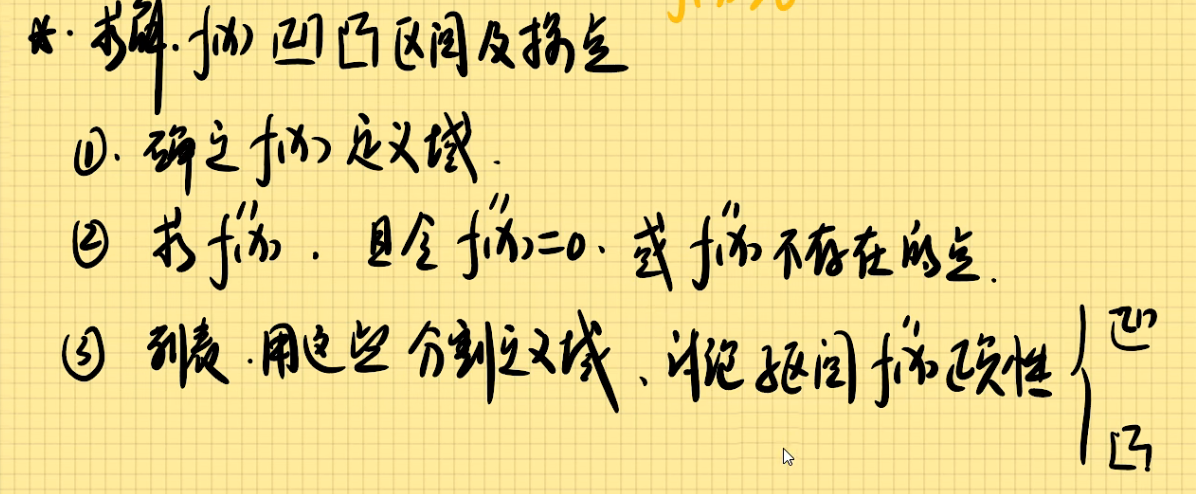 *. 求解. f(x) 凹凸区间及拐点
①. 确定 f(x) 定义域.
② 求 f''(x). 且令 f''(x)=0. 或 f''(x) 不存在的点.
③ 列表. 用这些 分割定义域、讨论 区间 f''(x) 正负性 { 凹
凸